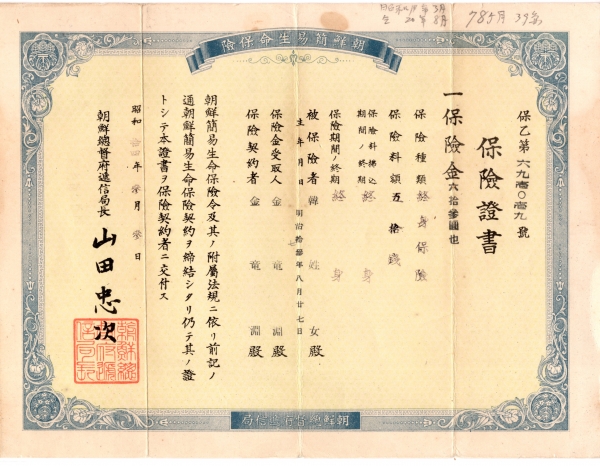 朝鮮簡易生命保險
785月
保乙第六九壹〇壹九號
保險證書
一保險金六拾參圓也
保險種類 終身保險
保險料額 五拾錢
保險料拂込期間ノ終期 終身
保險期間ノ終期 終身
被保險者 韓姓女殿
生年月日 明治拾參年八月廿七日
保險金受取人 金竜淵殿
保險契約者 金竜淵殿
朝鮮簡易生命保險令及其ノ附屬法規ニ依リ前記ノ
通朝鮮簡易生命保險契約ヲ締結シタリ仍テ其ノ證
トシテ本證書ヲ保險契約者ニ交付ス
昭和 年 月 日
朝鮮總督府遞信局長 山田忠次
朝鮮總督府遞信局